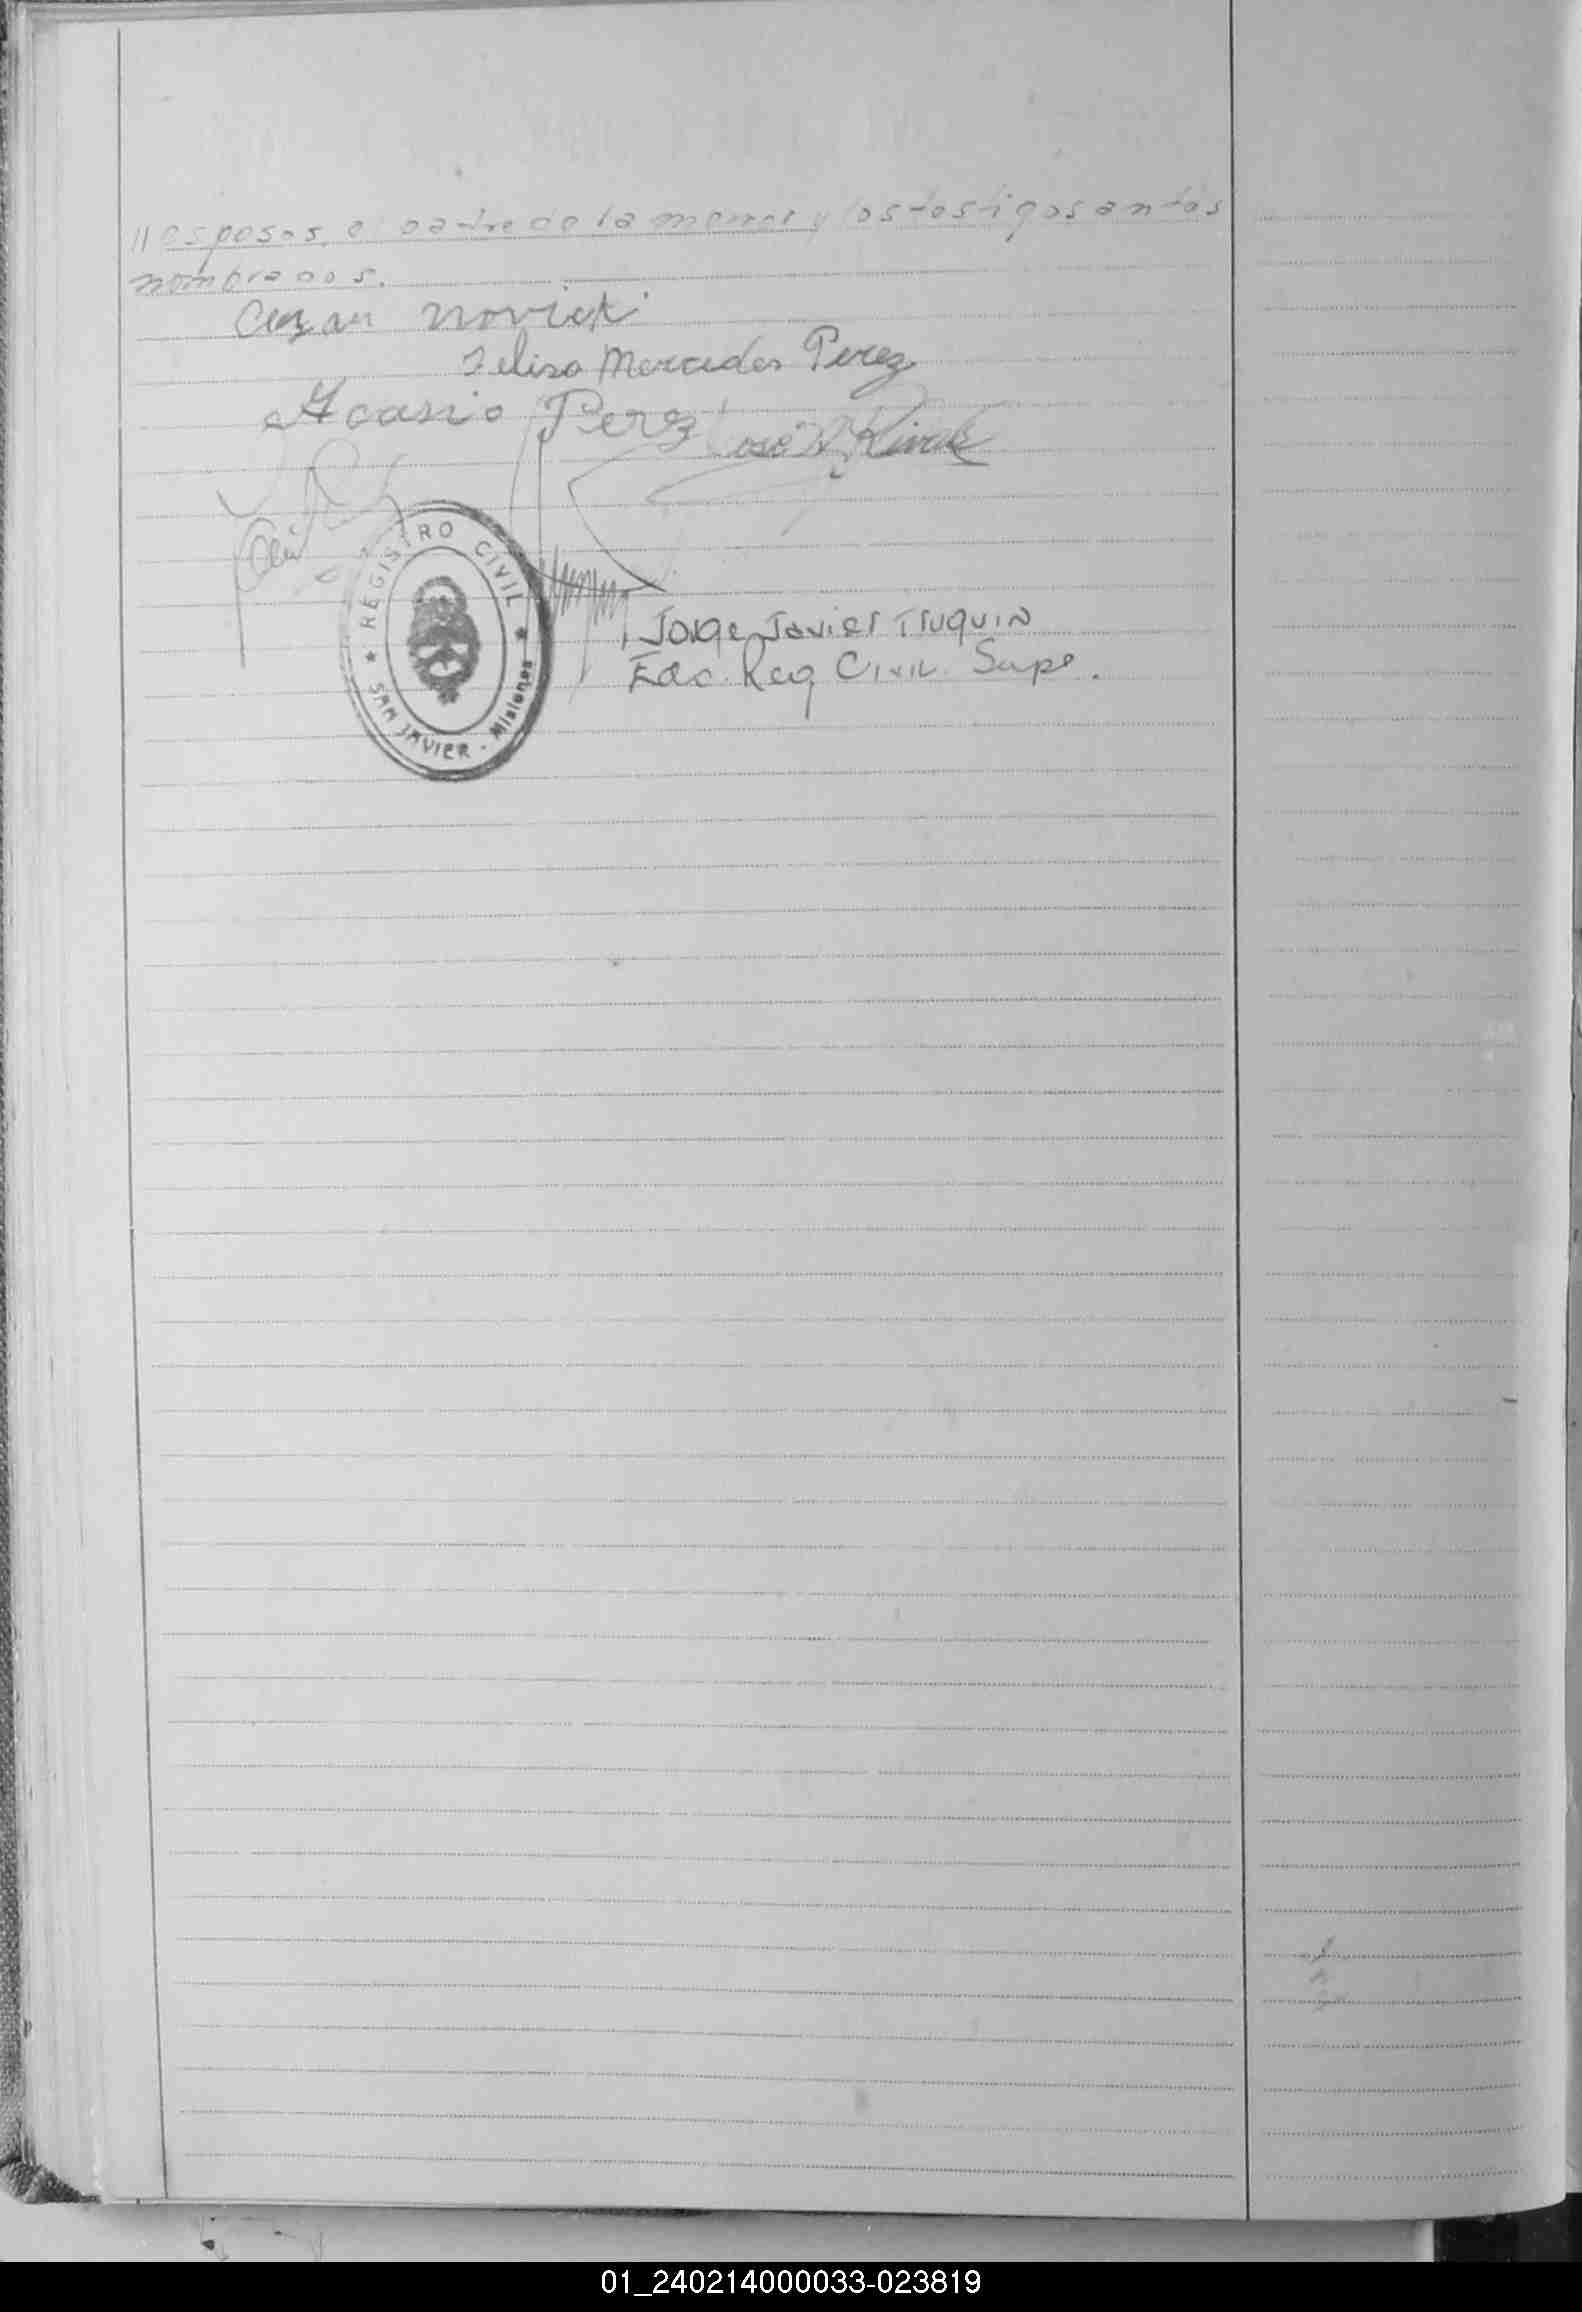 //esposos, el padre de la menor y los testigos antes
nombrados.
Novicki
Felisa Mercedes Perez
Acasio Perez
José
REGISTRO CIVIL
SAN JAVIER - Misiones
Jorge Javier Truquin
Enc. Reg Civil Sup.
01_240214000033-023819